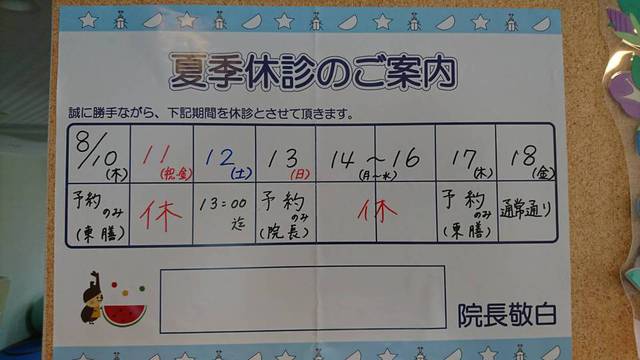 夏季休診のご案内
誠に勝手ながら、下記期間を休診とさせて頂きます。
8/10(木) 11(祝・金) 12(土) 13(日) 14〜16(月〜水) 17(木) 18(金)
予約のみ(東膳) 休 13:00迄 予約のみ(院長) 休 予約のみ(東膳) 通常通り
院長敬白